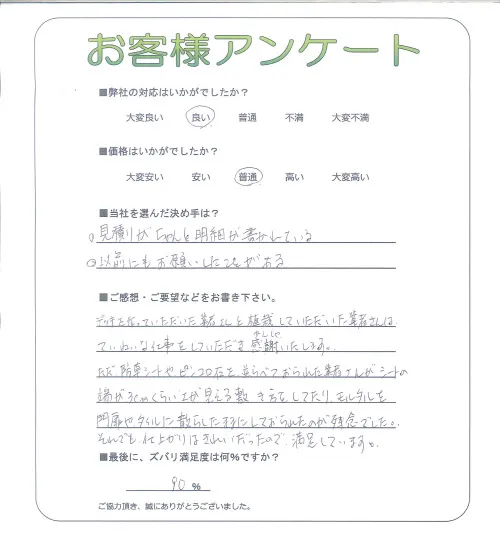 お客様アンケート
■弊社の対応はいかがでしたか？
大変良い 良い 普通 不満 大変不満
■価格はいかがでしたか？
大変安い 安い 普通 高い 大変高い
■当社を選んだ決め手は？
①見積りがちゃんと明細が書かれている
②以前にもお願いしたことがある
■ご感想・ご要望などをお書き下さい。
デッキを作っていただいた業者さんと植栽していただいた業者さんは
ていねいな仕事をしていただき感謝いたします。
かんしゃ
ただ防草シートやピンコロ石を並らべておられた業者さんがシートの
端が3cmくらい土が見える敷き方をしてたり、モルタルを
門扉やタイルに散らしたままにしておられたのが残念でした。
それでも仕上がりはきれいだったので、満足しています。
■最後に、ズバリ満足度は何％ですか？
90 ％
ご協力頂き、誠にありがとうございました。